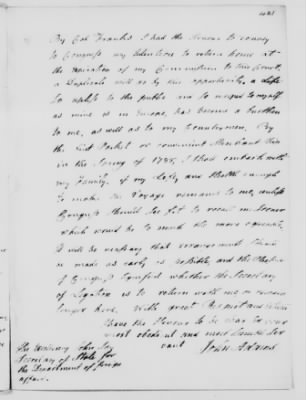 By Coll Franks I had the Honour to convey
to Congress my Intentions to return home at
the Expiration of my Commission to this Court,
a Duplicate will go by this opportunity, a Life
so useless to the public and so insipid to myself
as mine is in Europe, has become a Burthen
to me, as well as to my Countrymen. By
the first Packet or convenient Merchant Ship
in the Spring of 1788, I shall embark with
my Family, if my Life, and Health enough
to make the Voyage remains to me, unless
Congress should see fit to recall me sooner
which would be to me much the more agreeable.
It will be necessary that
be made as early as possible, and the Pleasure
of Congress signified whether the Secretary
of Legation is to return with me or remain
longer here. With great Respect and Esteem
I have the Honour to be Sir, your
most obedient and most humble Ser
vant John Adams
His Excellency John Jay
Secretary of State for
the Department of foreign
affairs.